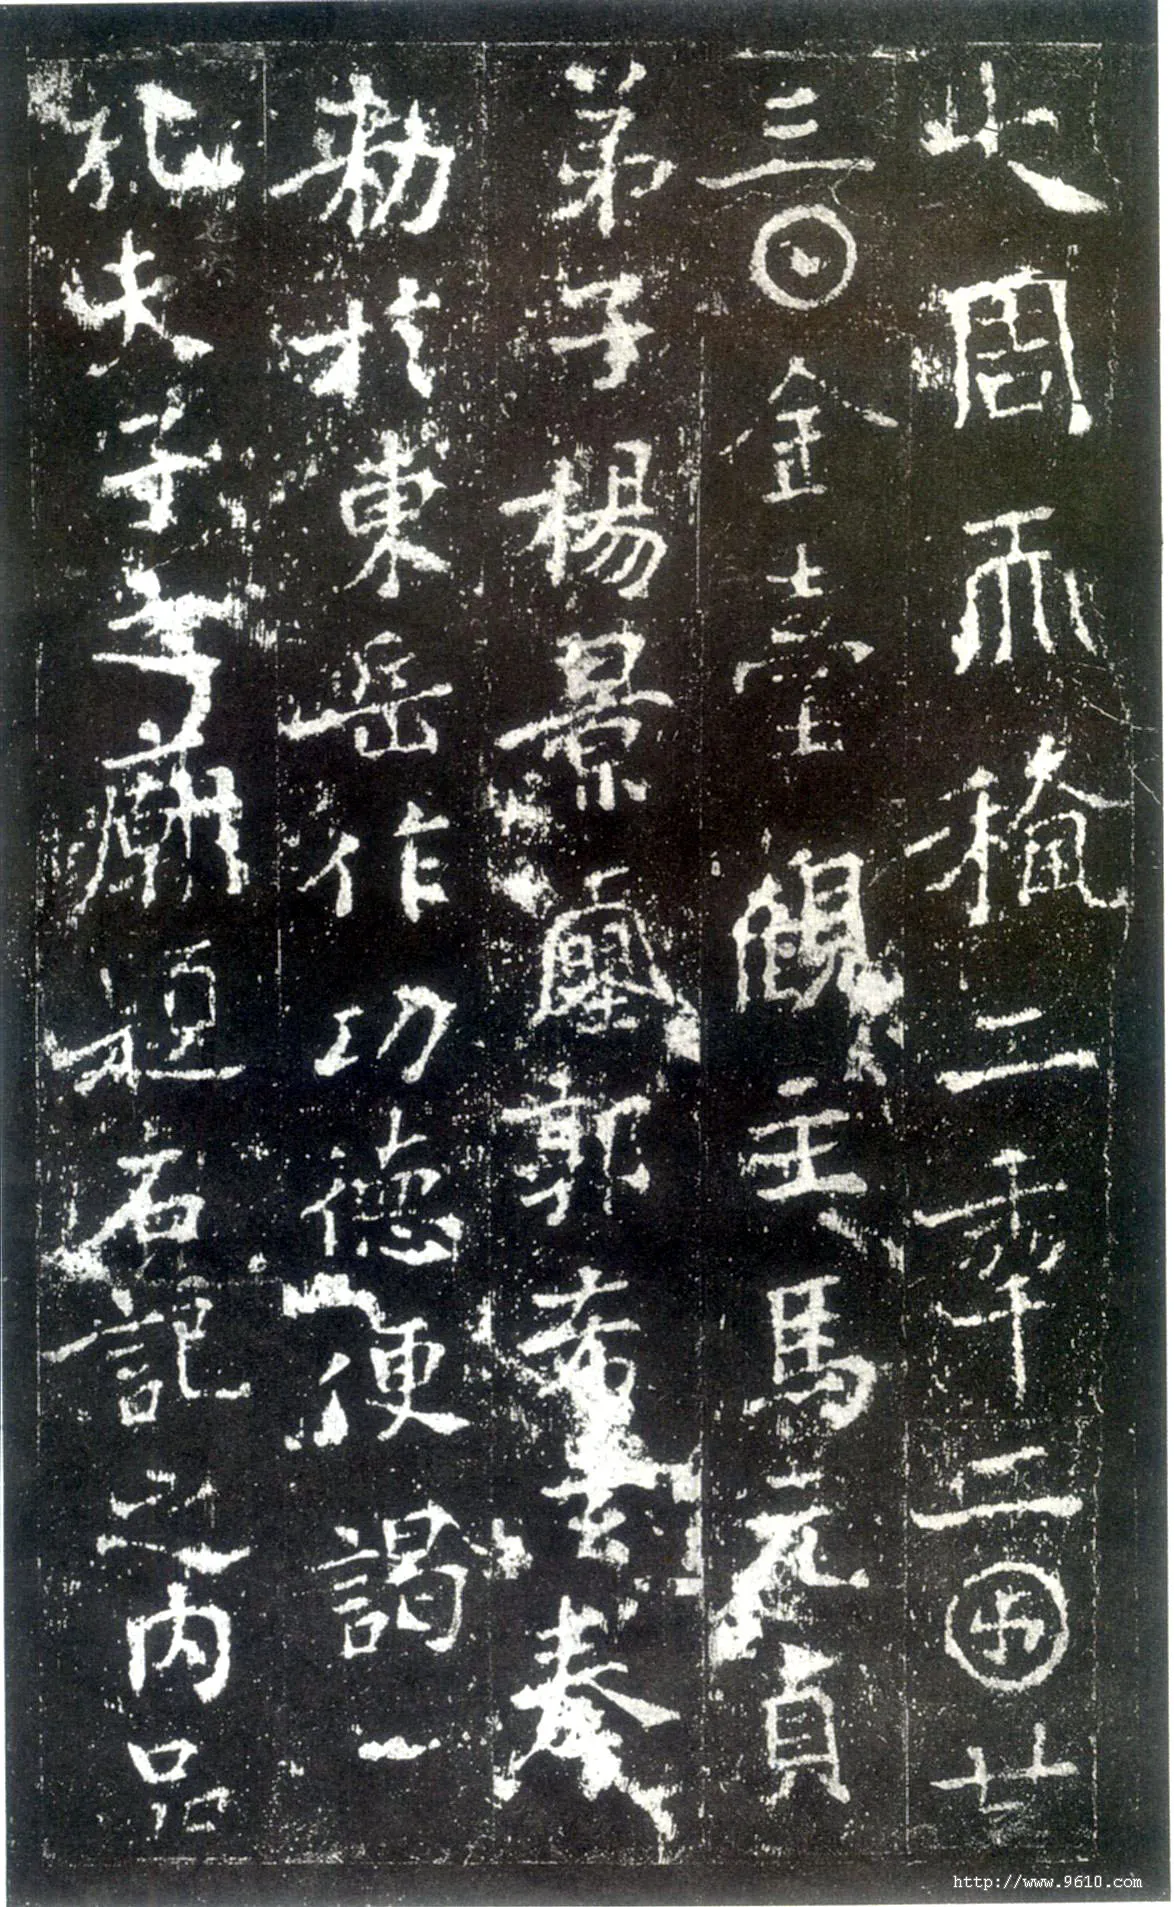 大周𠀑𥠢二𠡦二𠥱廿
三𡆠金臺觀主馬元貞
弟子楊景𡔈郭希玄奉
勅於東岳作功德便謁一
孔夫子之廟題石記之内品
http://www.9610.com